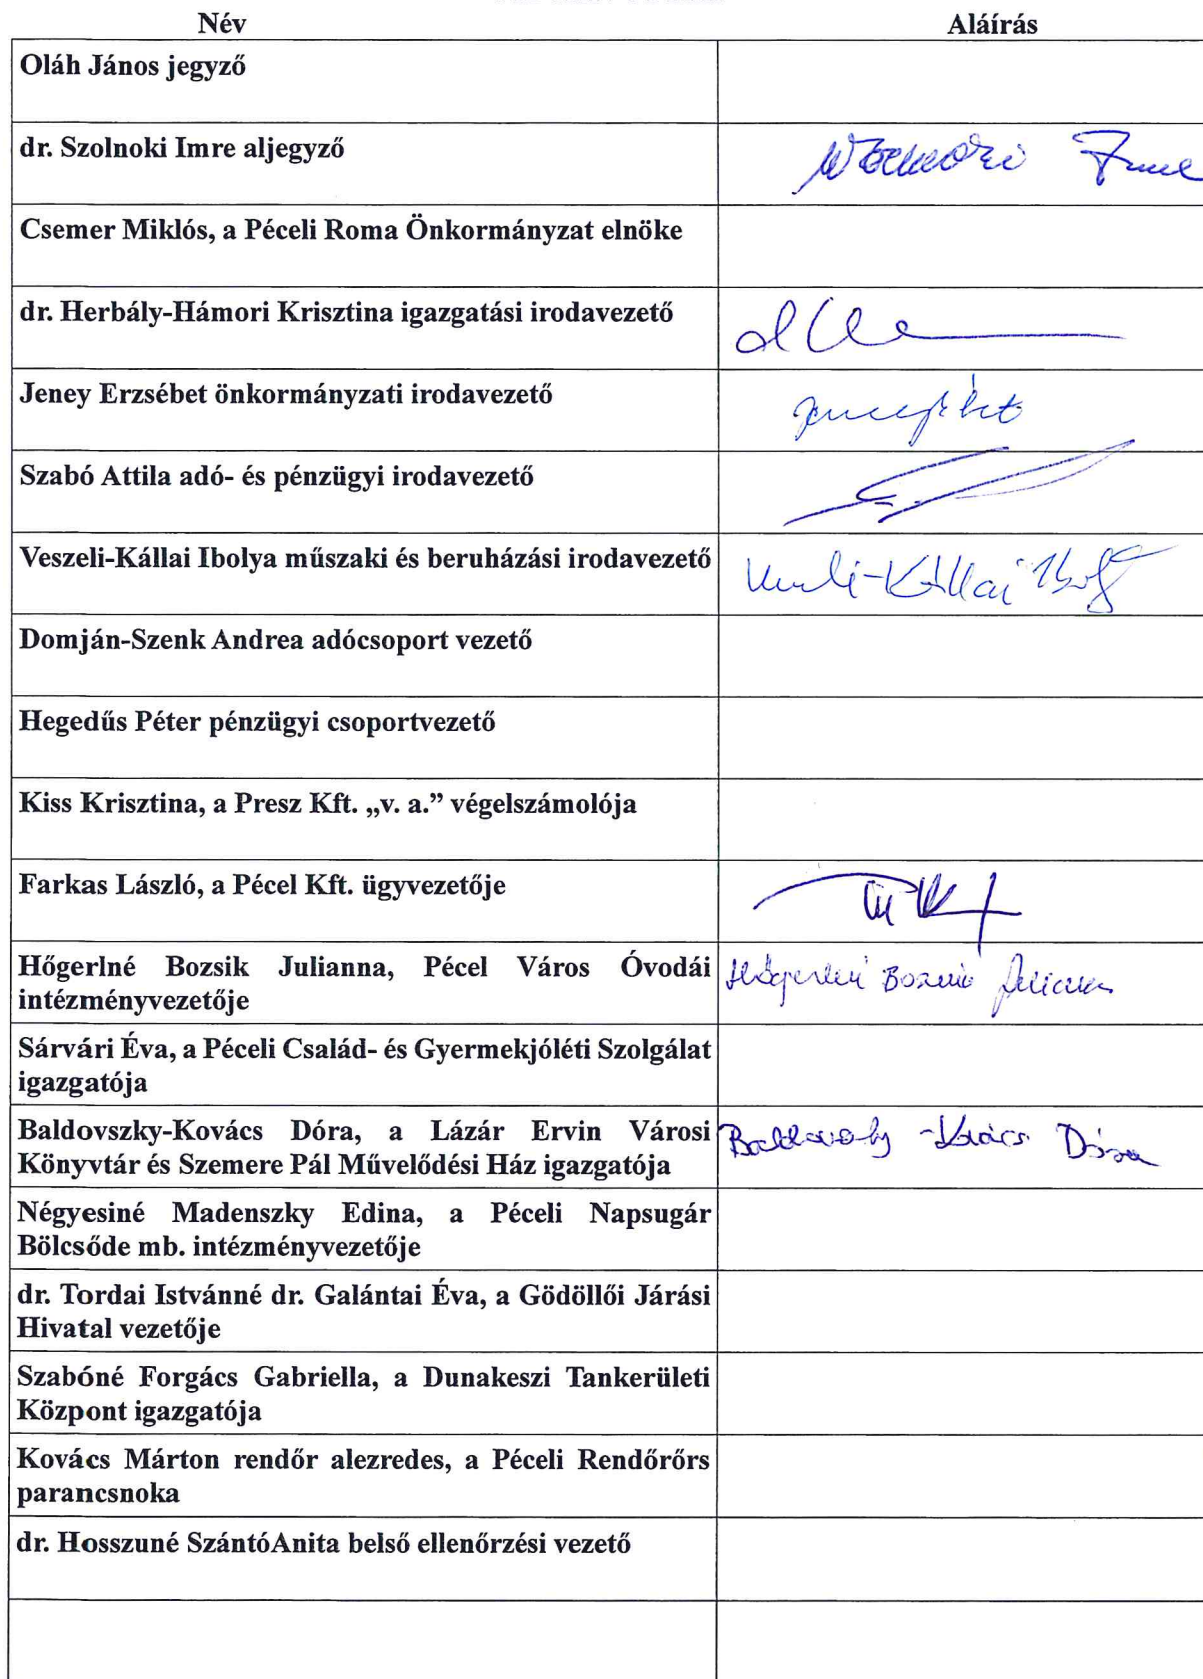 Név Aláírás
Oláh János jegyző
dr. Szolnoki Imre aljegyző
Csemer Miklós, a Péceli Roma Önkormányzat elnöke
dr. Herbály-Hámori Krisztina igazgatási irodavezető
Jeney Erzsébet önkormányzati irodavezető
Szabó Attila adó- és pénzügyi irodavezető
Veszeli-Kállai Ibolya műszaki és beruházási irodavezető
Domján-Szenk Andrea adócsoport vezető
Hegedűs Péter pénzügyi csoportvezető
Kiss Krisztina, a Presz Kft. „v. a.” végelszámolója
Farkas László, a Pécel Kft. ügyvezetője
Hőgerlné Bozsik Julianna, Pécel Város Óvodái
intézményvezetője
Sárvári Éva, a Péceli Család- és Gyermekjóléti Szolgálat
igazgatója
Baldovszky-Kovács Dóra, a Lázár Ervin Városi
Könyvtár és Szemere Pál Művelődési Ház igazgatója
Baldovszky-Kovács Dóra
Négyesiné Madenszky Edina, a Péceli Napsugár
Bölcsőde mb. intézményvezetője
dr. Tordai Istvánné dr. Galántai Éva, a Gödöllői Járási
Hivatal vezetője
Szabóné Forgács Gabriella, a Dunakeszi Tankerületi
Központ igazgatója
Kovács Márton rendőr alezredes, a Péceli Rendőrőrs
parancsnoka
dr. Hosszuné SzántóAnita belső ellenőrzési vezető